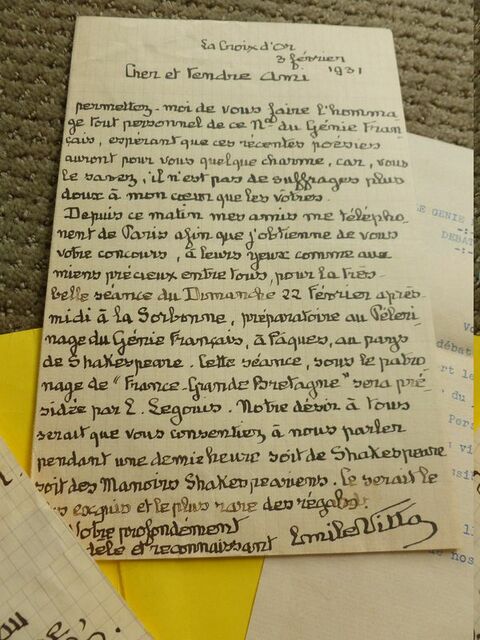 La Croix d'Or
3 février
1931
Cher et tendre Ami
permettez-moi de vous faire l'homma
ge tout personnel de ce No du Génie Fran-
çais, espérant que ces récentes poésies
auront pour vous quelque charme, car, vous
le savez, il n'est pas de suffrages plus
doux à mon cœur que les vôtres.
Depuis ce matin mes amis me télépho-
nent de Paris afin que j'obtienne de vous
votre concours, à leurs yeux comme aux
miens précieux entre tous, pour la très-
belle séance du Dimanche 22 Février après-
midi à la Sorbonne, préparatoire au Pèleri-
nage du Génie Français, à Pâques, au pays
de Shakespeare. Cette séance, sous le patro
nage de "France-Grande Bretagne" sera pré-
sidée par E. Legouis. Notre désir à tous
serait que vous consentiez à nous parler
pendant une demie heure soit de Shakespeare
soit des Manoirs Shakespeariens. Ce serait le
us exquis et le plus rare des régals.
Votre profondément
dèle et reconnaissant
LE GENIE
DEBAT
débat
rt le
du
Pers
vi
usit
de nos